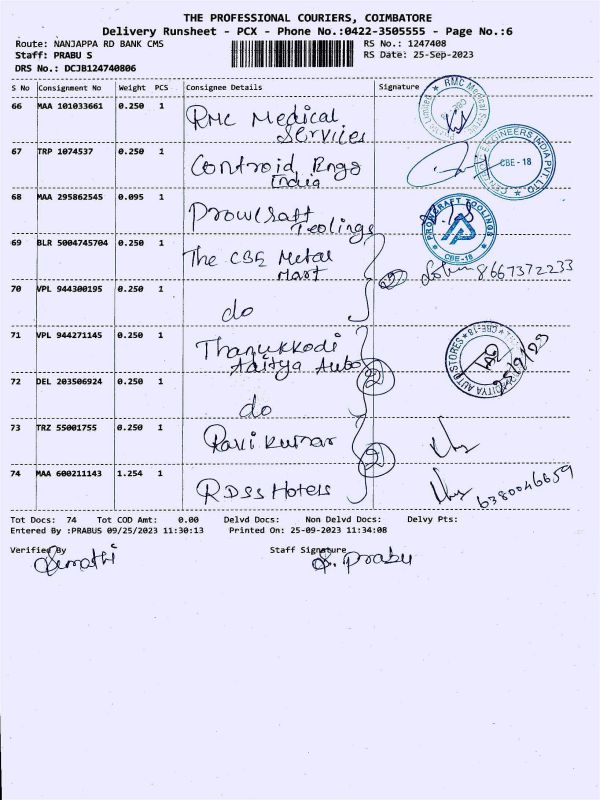 THE PROFESSIONAL COURIERS, COIMBATORE
Delivery Runsheet - PCX - Phone No.:0422-3505555 - Page No.:6
Route: NANJAPPA RD BANK CMS RS No.: 1247408
Staff: PRABU S RS Date: 25-Sep-2023
DRS No.: DCJB124740806
S No Consignment No Weight PCS Consignee Details Signature
66 MAA 101033661 0.250 1 RMC Medical
Services
67 TRP 1074537 0.250 1 Controid Engs
India
CBE-18
68 MAA 295862545 0.095 1 Prowcraft
Toolings
PROWCRAFT TOOLINGS
CBE-18
69 BLR 5004745704 0.250 1 The CBE Metal
Mart
2 8667372233
70 VPL 944300195 0.250 1 do
71 VPL 944271145 0.250 1 Thanukkodi
Aditya Auto
2
25/9/23
72 DEL 203506924 0.250 1 do
73 TRZ 55001755 0.250 1 Ravi kumar
2
74 MAA 600211143 1.254 1 RDSS Hotels
6380046659
Tot Docs: 74 Tot COD Amt: 0.00 Delvd Docs: Non Delvd Docs: Delvy Pts:
Entered By :PRABUS 09/25/2023 11:30:13 Printed On: 25-09-2023 11:34:08
Verified By Staff Signature
S. Prabu